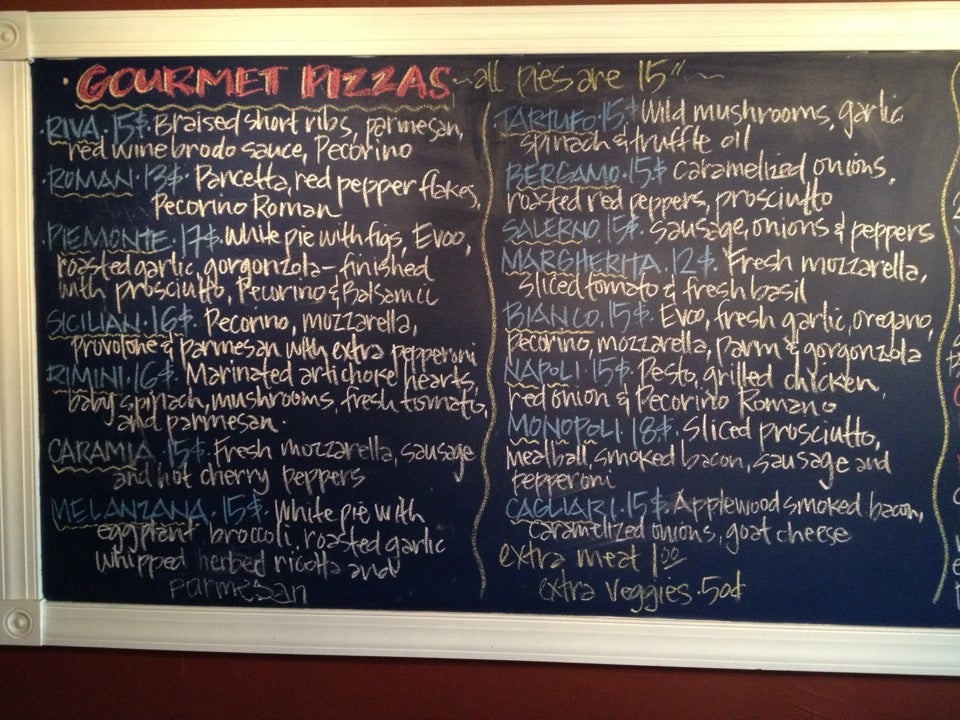 · GOURMET PIZZAS ~all pies are 15"~
· RIVA · 15$ · Braised short ribs, parmesan,
red wine brodo sauce, Pecorino
· ROMAN · 13$ · Pancetta, red pepper flakes,
Pecorino Roman
PIEMONTE · 17$ · White pie with figs, Evoo,
roasted garlic, gorgonzola - finished
with prosciutto, Pecorino & Balsamic
SICILIAN · 16$ · Pecorino, mozzarella,
provolone & parmesan with extra pepperoni
RIMINI · 16$ · Marinated artichoke hearts,
baby spinach, mushrooms, fresh tomato,
and parmesan.
CARAMIA 15$ · Fresh mozzarella, sausage
and hot cherry peppers
MELANZANA · 15$ · White pie with
eggplant broccoli, roasted garlic
whipped herbed ricotta and
parmesan
· TARTUFO · 15$ Wild mushrooms, garlic
spinach & truffle oil
BERGAMO · 15$ Caramelized onions,
roasted red peppers, prosciutto
SALERNO · 15$ · sausage, onions & peppers
MARGHERITA · 12$ · Fresh mozzarella,
sliced tomato & fresh basil
BIANCO · 15$ · Evoo, fresh garlic, oregano,
pecorino, mozzarella, parm & gorgonzola
NAPOLI · 15$ · Pesto, grilled chicken,
red onion & Pecorino Romano
MONOPOLI 18$ · Sliced prosciutto,
meatball, smoked bacon, sausage and
pepperoni
CAGLIARI · 15$ · Applewood smoked bacon,
caramelized onions, goat cheese
extra meat 1.00
extra veggies · 50¢